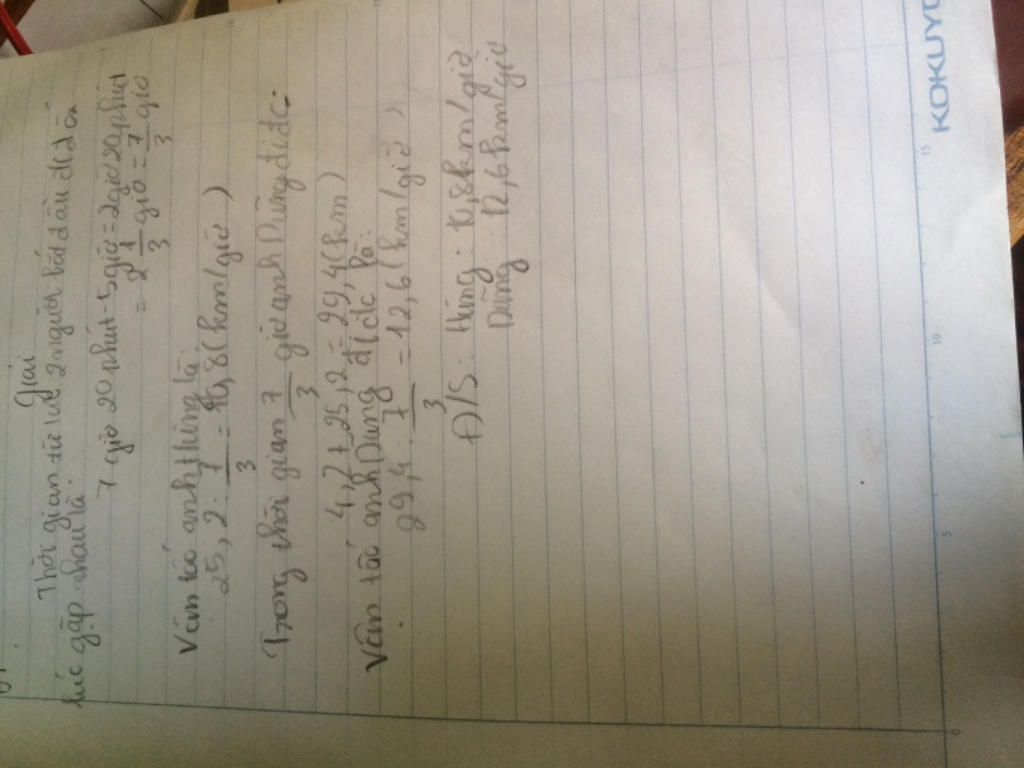 Giải
Thời gian từ lúc 2 người bắt đầu đi đến
lúc gặp nhau là:
7 giờ 20 phút - 5 giờ = 2 giờ 20 phút
= 2 1/3 giờ = 7/3 giờ
Vận tốc anh Hùng là
25,2 : 7/3 = 10,8 (km/giờ)
Trong thời gian 7/3 giờ anh Dũng đi đc:
4,2 + 25,2 = 29,4 (km)
Vận tốc anh Dũng đi đc là:
29,4 : 7/3 = 12,6 (km/giờ)
Đ/S: Hùng: 10,8 km/giờ
Dũng: 12,6 km/giờ
KOKUYO
0 5 10 15